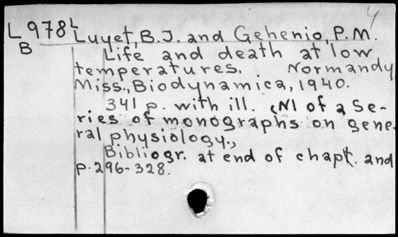 4
L 978L Luyet, B.J. and Gehenio, P.M.
B Life and death at low
temperatures. Normandy,
Miss., Biodynamica, 1940.
341 p. with ill. (N1 of a Se-
ries of monographs on gene-
ral physiology.,
Bibliogr. at end of chapt. and
p. 296-328.